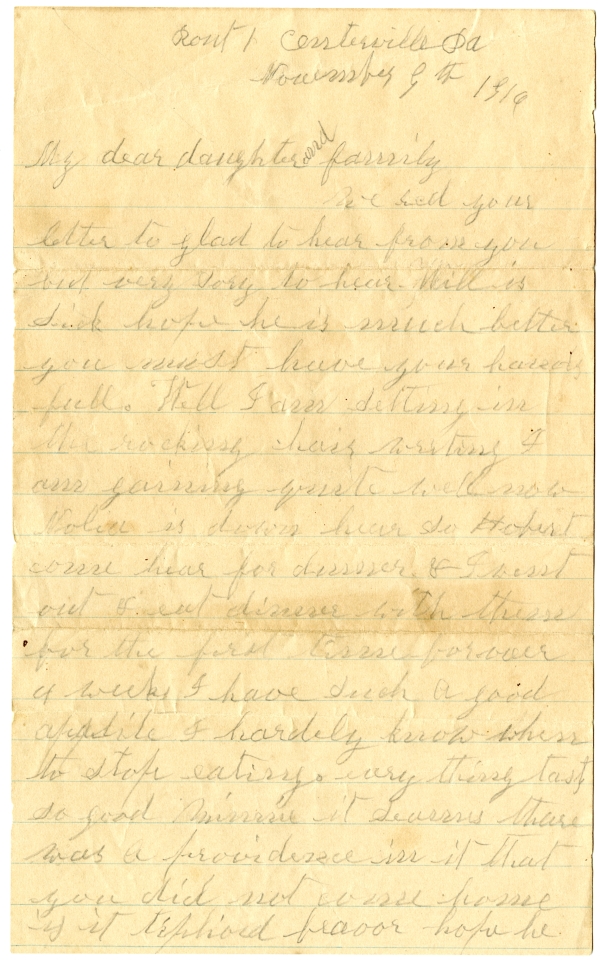 Rout 1 Centerville Ia
November 9th 1916
My dear daughter and family
we red your
letter to glad to hear from you
but very sory to hear Will is
sick hope he is much better
you must have your hands
full. Well I am setting in
the rocking chair writing I
am gaining quite well now
is down hear so Hobert
come hear for dinner & I went
out & eat dinner with them
for the first time for over
a week I have such a good
apetite I hardely know when
to stop eating. every thing tasts
so good Minnie it seams thare
was a providence in it that
you did not come home
is it tiphoid feavor hope he